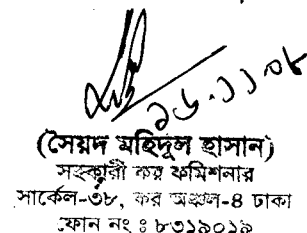 ১৬.১১.০৮
(সৈয়দ মহিদুল হাসান)
সহকারী কর কমিশনার
সার্কেল-৩৮, কর অঞ্চল-৪ ঢাকা
ফোন নং ঃ ৮৩১৯০১৯